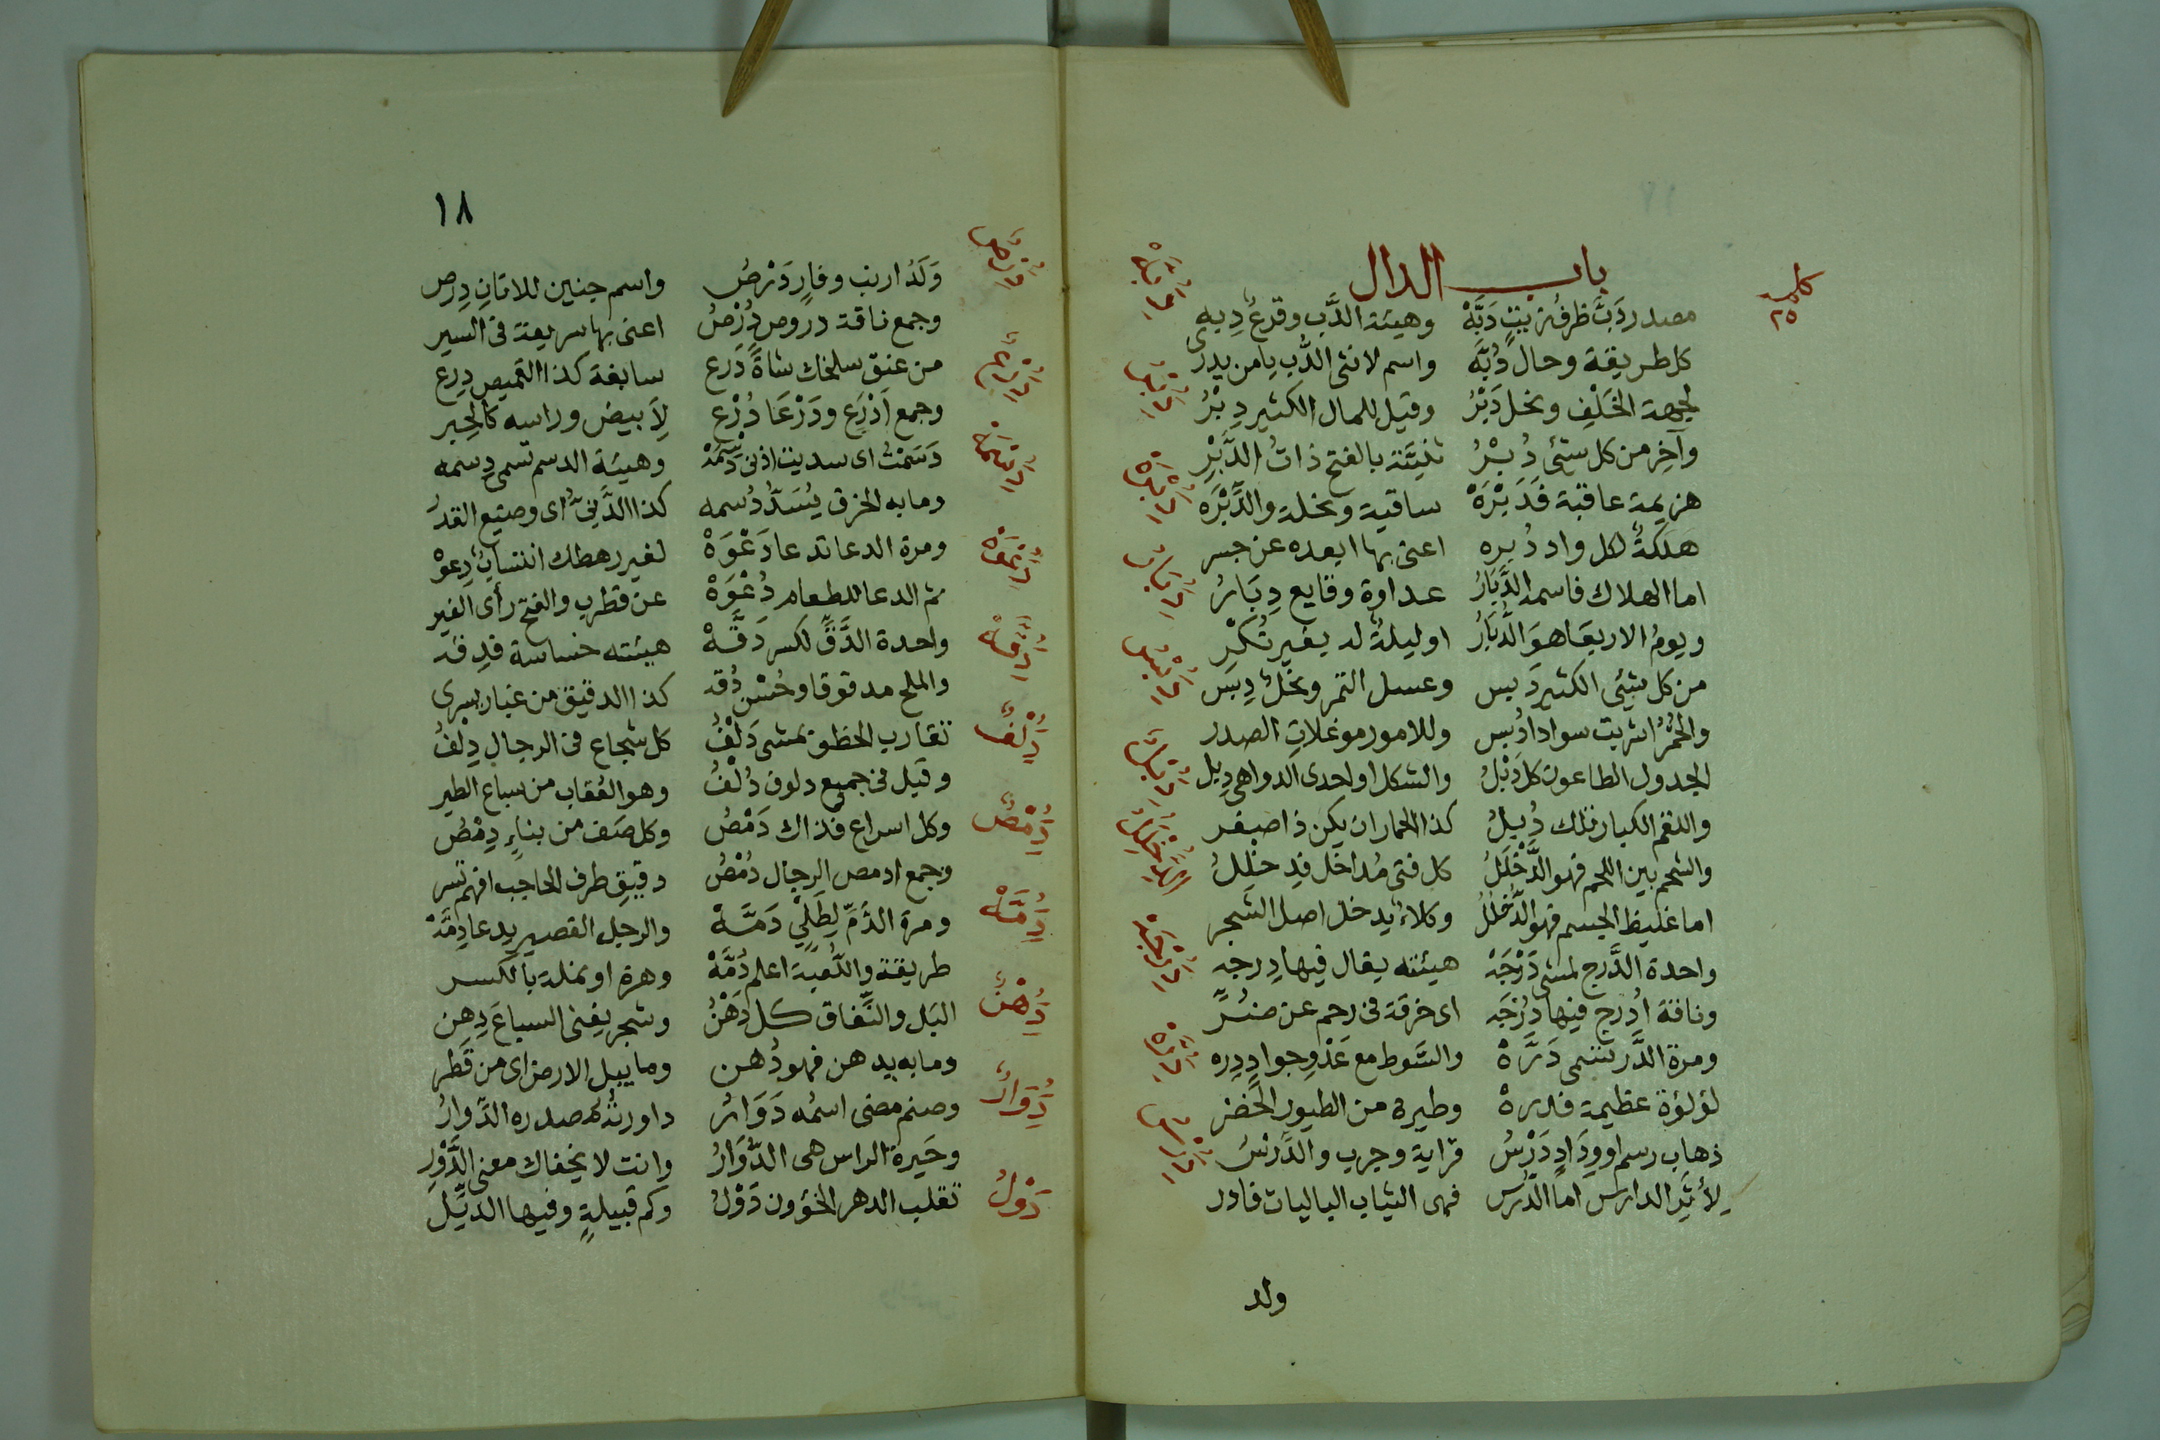 باب الدال
كلمة ٢٥
مصدر دَبَّ ظرفُ زيتٍ دَبَّهْ وهيئة الدَّبِ وقرعُ دِبه
كل طريقة وحال دُبَّه واسم لانثى الدُّب يا من يدرى
لجهة الخَلْفِ ونحل دَبْرُ وقيل للمال الكثير دِبْرُ
وآخِر من كل شئى دُبْرُ بالفتح ذاتُ الدَّبْرِ
هزيمة عاقبة فَدَبْرَهْ ساقية ونخلة والدِّبْرَه
هلكةُ لكل واد دُبره اعنى بها ابعده عن جسر
اما الهلاك فاسمه الدَّبَارُ عداوة وقايع دِبَارُ
ويومُ الاربعَا هوَ الدُّبَارُ او ليلةُ له بغير نُكْرِ
من كل شيئى الكثير دَبس وعسل التمر ونحلُ دِبس
والحُمُرُ اشربت سوادا دُبس وللامور موغلاتِ الصدر
الجدول الطاعون كل دَبْلُ والثكل او احدى الدواهى دِبل
واللقم الكبار فتلك دُبلُ كذا الحمار ان يكن ذا صغر
والشحم بين اللحم فهو الدَّخْلَلُ كل فتى مُداخل فدِخلِلُ
اما غليظ الجسم فهو الدُّخْلُلُ وكلاءُ يدخل اصل الشجر
واحدة الدَّرج لمشى دَرْجَهْ هيئته يقال فيها دِرجه
وناقة اُدرج فيها دُرْجَه اى خرقة فى رحم عن ضُرِّ
ومرة الدَّر تسمى دَرَّهْ والسَّوط مع عَدْوِ جوادٍ دِره
لؤلؤة عظيمة فدره وطيرة من الطيور الخُضر
ذهاب رسم او وِدَاد دَرْسُ قراية وجرب والدِّرْسُ
لِأَثَرِ الدارس اما الدُّرس فهى الثياب الباليات فادر
دَِبَّه
دَُِبْر
دَُِبْرَه
دَُِبَار
دَُِبْس
دَُِبْل
الدَُِّخْلَل
دَُِرْجَه
دَُِرَّه
دَُِرْس
ولد
١٨
وَلَدُ ارنب وفارٍ دَرْصُ واسم جنين للاتانِ دِرص
وجمع ناقة دروص دُرْصُ اعنى بها سريعة فى السير
من عنق سلخك شاةً دَرع سابغة كذا القميص دِرع
وجمع اَدْرَعٍ ودَرْعَا دُرْع لِاَبيض وراسه كالحِبر
دَسَمْتُ اى سديت اذنى دَسْمَهْ وهيئة الدسم تسمى دِسمه
وما به الخرق يُسَدُّ دُسمه كذا الدَّنِىُّ اى وضيع القدرُ
ومرة الدعا تدعا دَعْوَهْ لغير رهطك انتسابُ دِعوْ
ثم الدعا للطعام دُعْوَهْ عن قطرب والفتح رأى الغير
واحدة الدَّقِّ لكسر دَقَّهْ هيئته خساسة فدِقه
والملح مدقوقا وحُسْن دُقه كذا الدقيق من غبار يسرى
تقارب الخطو بمشى دَلْفُ كل شجاع فى الرجال دِلْفُ
وقيل فى جميع دلوف دُلْفُ وهو العُقاب من سباع الطير
وكل اسراع فذاك دَمْصُ وكل صَف من بناءٍ دِمْصُ
وجمع ادمص الرجال دُمْصُ دقيقِ طرف الحاجب افهم تسر
ومرة الدَّمِّ لِطَلْيٍ دَمَّهْ والرجل القصير يدعا دِمَّهْ
طريقة واللُّعبة اعلم دُمَّهْ وهرة او نملة بالكسر
البَل والنِّفاق كل دَهْنُ وشجر يفنى السباعَ دِهن
وما به يدهن فهو دُهن وما يبل الارض اى من قَطر
وصنم مضى اسمُه دَوَارُ داورتُه مصدره الدِّوارُ
وحَيرة الراس هى الدُّوَارُ وانت لا يخفاك معنى الدَّوْرِ
تقلب الدهر الخؤون دَوْلُ وكم قبيلةٍ وفيها الدِّيَل
دَُِرْص
دَُِرْع
دَُِسْمَه
دَُِعْوَه
دَُِقَّه
دَُِلْف
دَُِمْص
دَُِمَّه
دَُِهْن
دَُِوَار
دَوْل